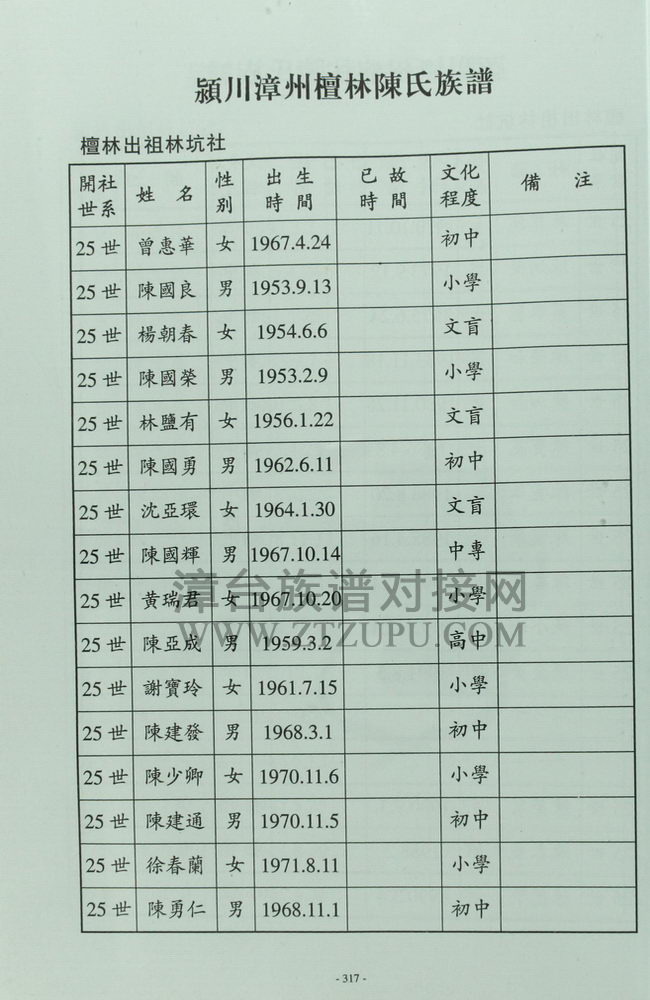 潁川漳州檀林陳氏族譜
檀林出祖林坑社
開社世系 姓 名 性別 出生時間 已故時間 文化程度 備 注
25世 曾惠華 女 1967.4.24 初中
25世 陳國良 男 1953.9.13 小學
25世 楊朝春 女 1954.6.6 文盲
25世 陳國榮 男 1953.2.9 小學
25世 林鹽有 女 1956.1.22 文盲
25世 陳國勇 男 1962.6.11 初中
25世 沈亞環 女 1964.1.30 文盲
25世 陳國輝 男 1967.10.14 中專
25世 黃瑞君 女 1967.10.20 小學
25世 陳亞成 男 1959.3.2 高中
25世 謝寶玲 女 1961.7.15 小學
25世 陳建發 男 1968.3.1 初中
25世 陳少卿 女 1970.11.6 小學
25世 陳建通 男 1970.11.5 初中
25世 徐春蘭 女 1971.8.11 小學
25世 陳勇仁 男 1968.11.1 初中
漳台族谱对接网
WWW.ZTZUPU.COM
- 317 -